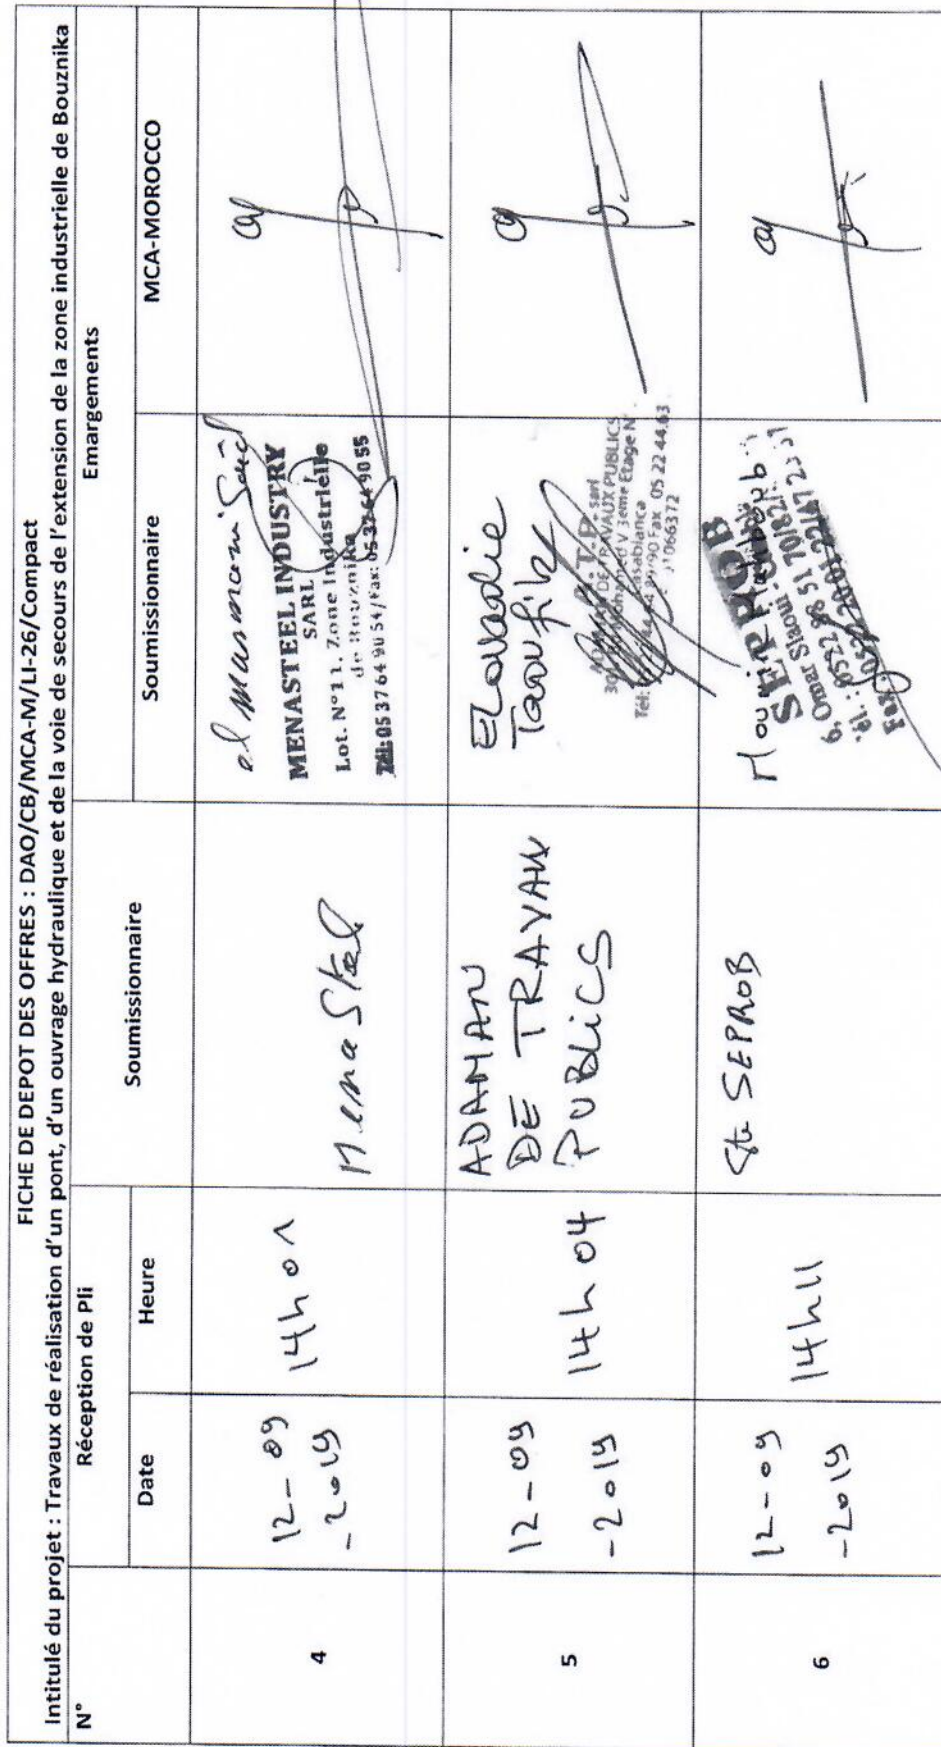 FICHE DE DEPOT DES OFFRES : DAO/CB/MCA-M/LI-26/Compact
Intitulé du projet : Travaux de réalisation d'un pont, d'un ouvrage hydraulique et de la voie de secours de l'extension de la zone industrielle de Bouznika
N°
Réception de Pli
Soumissionnaire
Emargements
Date
Heure
Soumissionnaire
MCA-MOROCCO
4
12-09
-2019
14h01
Mena Steel
el marmouni Said
MENASTEEL INDUSTRY
SARL
Lot. N°11. Zone Industrielle
de Bouznika
Tél: 05 37 64 90 54/Fax: 05 37 64 90 55
5
12-09
-2019
14h04
ADAMAN
DE TRAVAUX
PUBLiCS
ELouadie
Taoufik
T.P. sarl
DE TRAVAUX PUBLICS
Mohamed V 3eme Etage N°
Casablanca
99/90 Fax 05 22 44.63
066372
6
12-09
-2019
14h11
Ste SEPROB
Mahboub
SEPROB
6, Omar Slaoui
Tél.: 0522 88 51 70/82
Fax: 0522 20 01 22/47 23 51